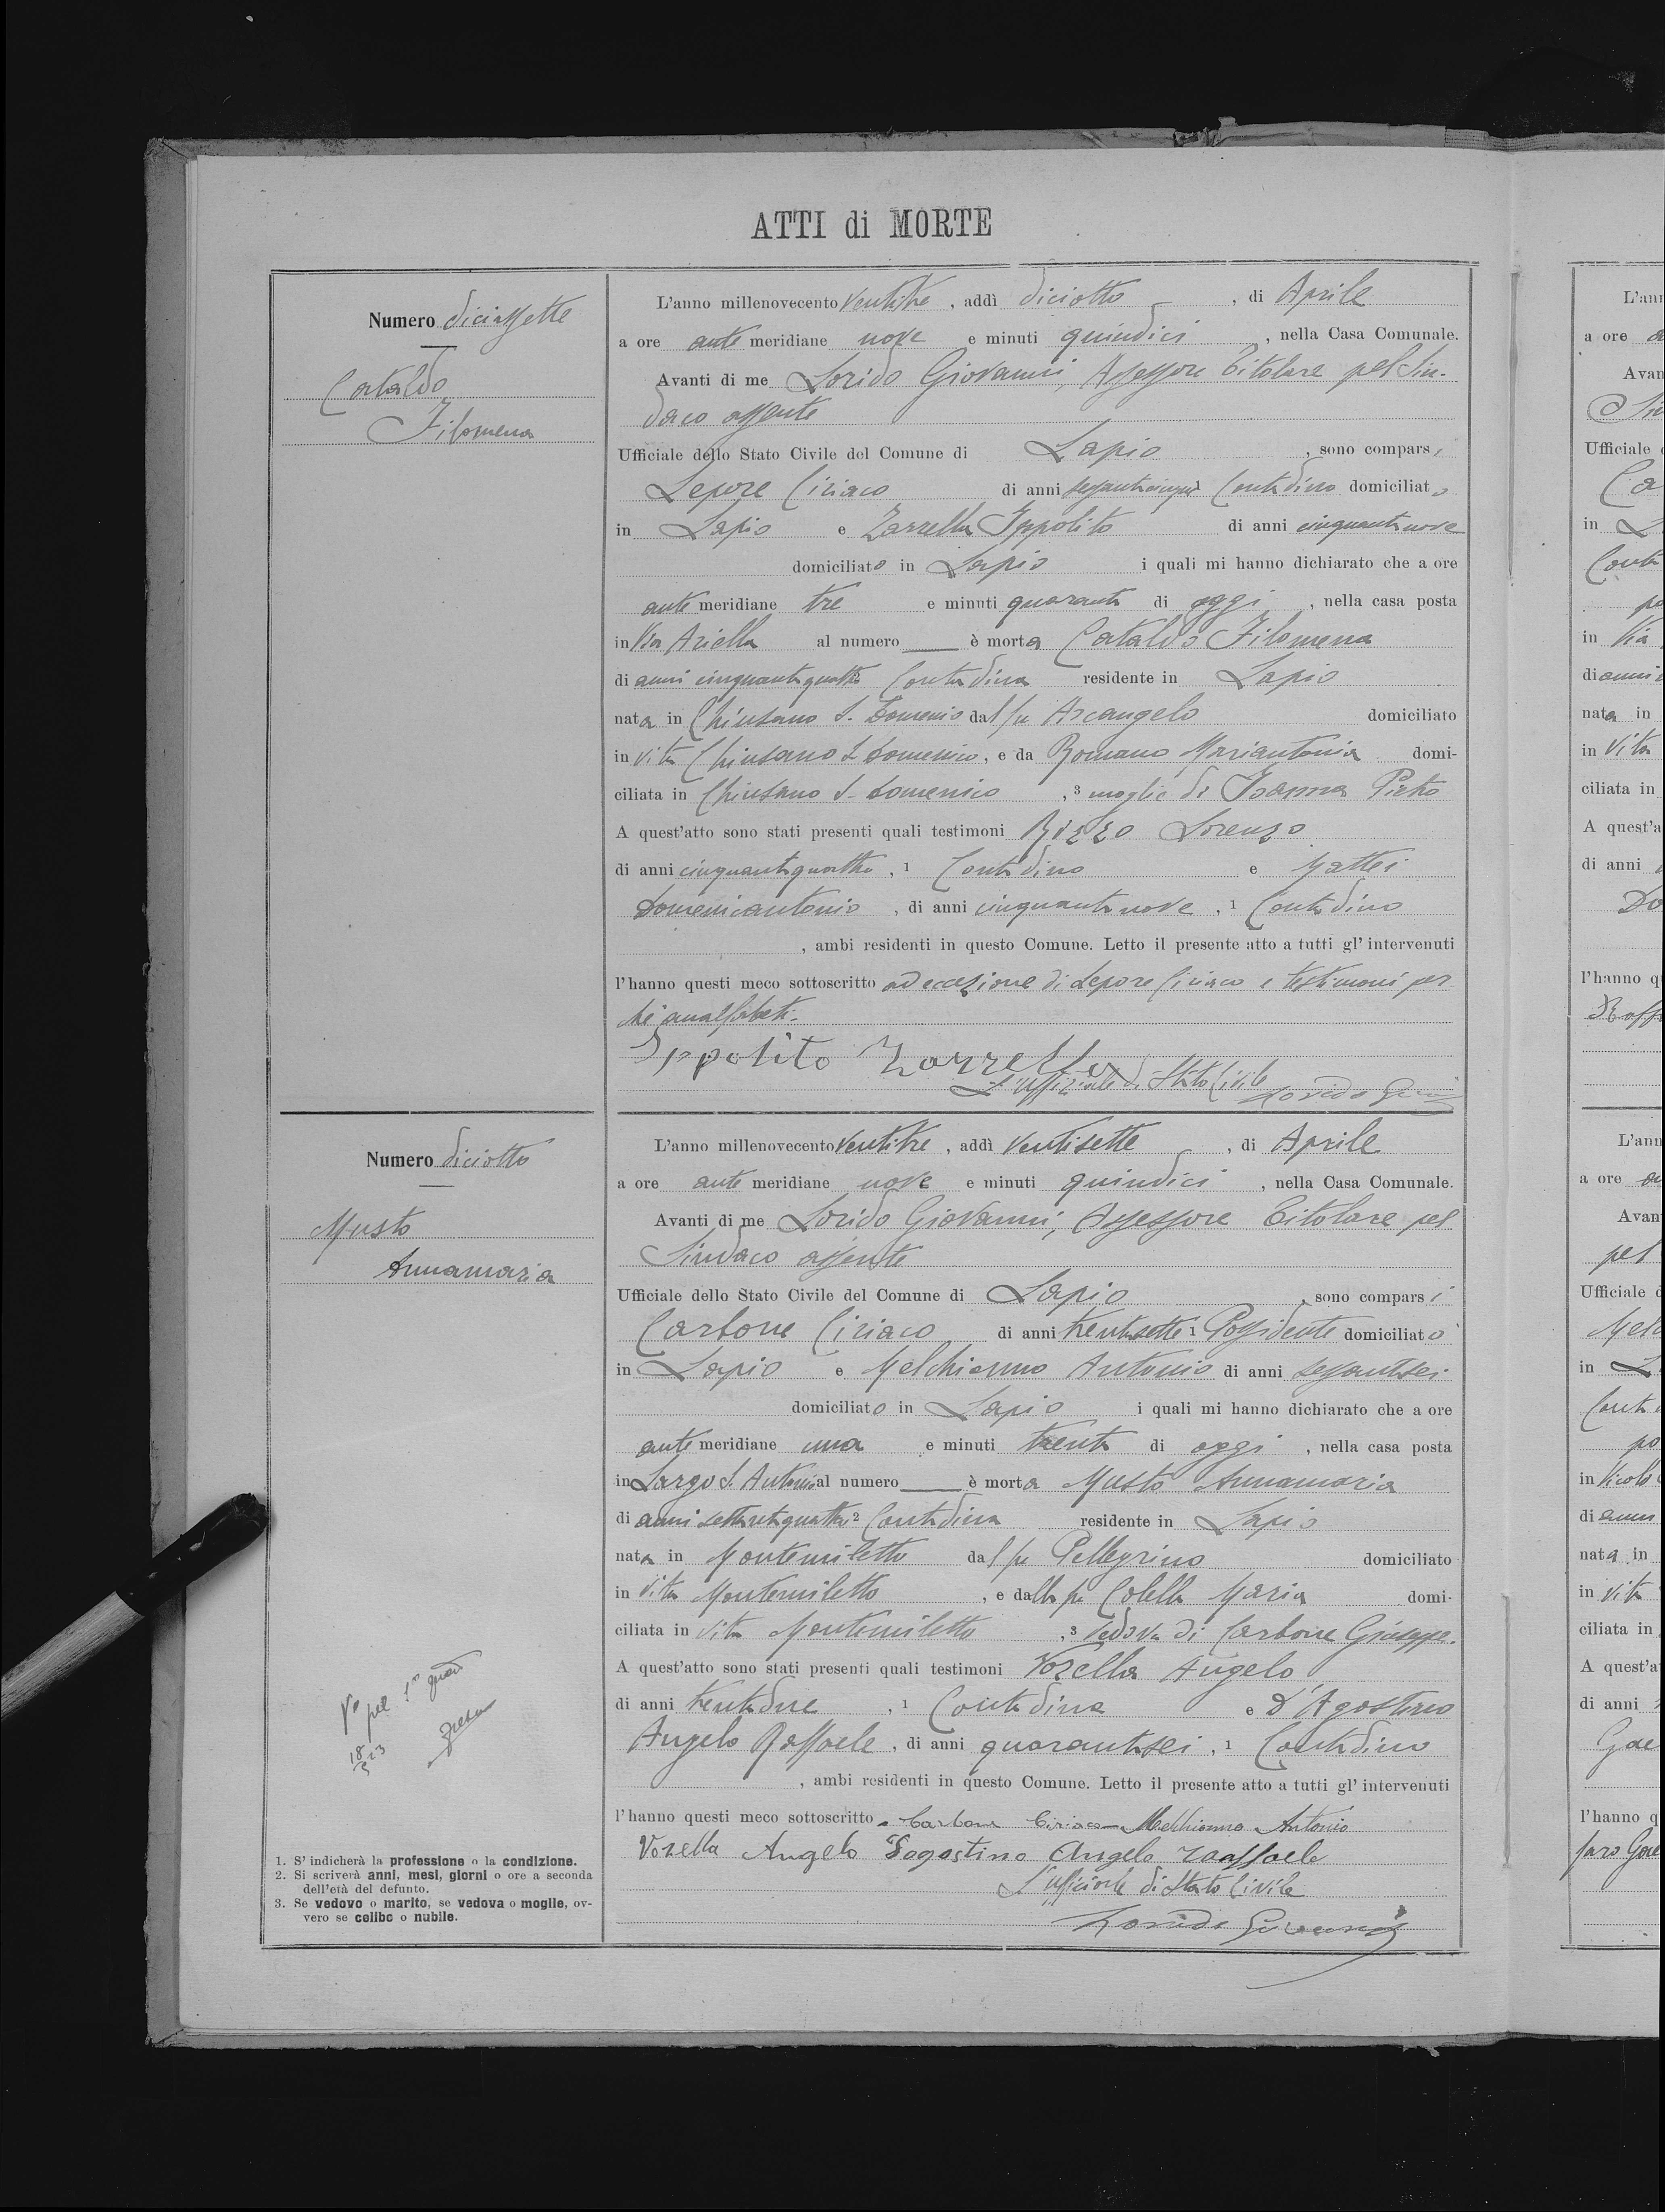 ATTI di MORTE
Numero diciassette
Cataldo
Filomena
L'anno millenovecento ventitre, addì diciotto, di Aprile
a ore ante meridiane nove e minuti quindici, nella Casa Comunale.
Avanti di me Lorido Giovanni, Assessore Titolare pel Sin-
daco assente
Ufficiale dello Stato Civile del Comune di Lapio, sono compars i
Lepore Ciriaco di anni sessantacinque Contadino domiciliato
in Lapio e Zarrella Ippolito di anni cinquantanove
domiciliato in Lapio i quali mi hanno dichiarato che a ore
ante meridiane tre e minuti quaranta di oggi, nella casa posta
in Via Ariella al numero è morta Cataldo Filomena
di anni cinquantaquattro Contadina residente in Lapio
nata in Chiusano S. Domenico dal fu Arcangelo domiciliato
in vita Chiusano S. Domenico, e da Romano Mariantonia domi-
ciliata in Chiusano S. Domenico, 3 moglie di Pietro
A quest'atto sono stati presenti quali testimoni Rizzo Lorenzo
di anni cinquantaquattro, 1 Contadino e Mattei
Domenicantonio, di anni cinquantanove, 1 Contadino
, ambi residenti in questo Comune. Letto il presente atto a tutti gl' intervenuti
l'hanno questi meco sottoscritto ad eccezione di Lepore Ciriaco e testimoni per-
chè analfabeti.
Ippolito Zarrella
L'Uffiziale di Stato Civile
Lorido Giovanni
Numero diciotto
Musto
Annamaria
L'anno millenovecento ventitre, addì ventisette, di Aprile
a ore ante meridiane nove e minuti quindici, nella Casa Comunale.
Avanti di me Lorido Giovanni, Assessore Titolare pel
Sindaco assente
Ufficiale dello Stato Civile del Comune di Lapio, sono compars i
Carbone Ciriaco di anni trentasette 1 Possidente domiciliato
in Lapio e Melchionno Antonio di anni sessantasei
domiciliato in Lapio i quali mi hanno dichiarato che a ore
ante meridiane una e minuti trenta di oggi, nella casa posta
in Largo S. Antonio al numero è morta Musto Annamaria
di anni settantaquattro 2 Contadina residente in Lapio
nata in Montemiletto dal fu Pellegrino domiciliato
in vita Montemiletto, e dalla fu Colella Maria domi-
ciliata in vita Montemiletto, 3 vedova di Carbone Giuseppe.
A quest'atto sono stati presenti quali testimoni Vozella Angelo
di anni trentadue, 1 Contadino e D'Agostino
Angelo Raffaele, di anni quarantasei, 1 Contadino
, ambi residenti in questo Comune. Letto il presente atto a tutti gl' intervenuti
l'hanno questi meco sottoscritto Carbone Ciriaco - Melchionno Antonio
Vozella Angelo Dagostino Angelo Raaffaele
L'Ufficiale di Stato Civile
Lorido Giovanni
Vo pel
18
1. S' indicherà la professione o la condizione.
2. Si scriverà anni, mesi, giorni o ore a seconda
dell'età del defunto.
3. Se vedovo o marito, se vedova o moglie, ov-
vero se celibe o nubile.